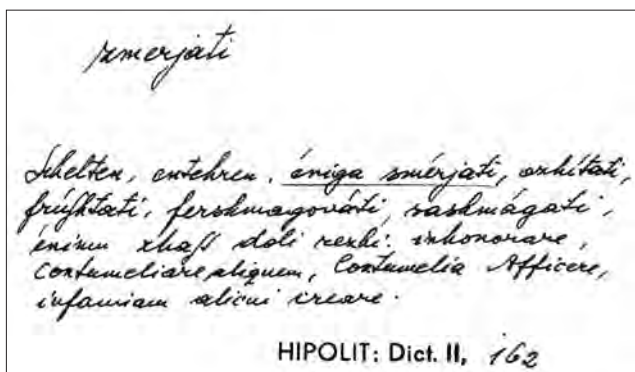 zmerjati
Schelten, entehren, éniga smérjati, ozhítati,
frúshtati, fershmagováti, sashmágati,
énimu zhast doli rezhi: inhonorare,
contumeliare aliquem, Contumelia Afficere,
infamiam alicui creare.
HIPOLIT: Dict. II, 162